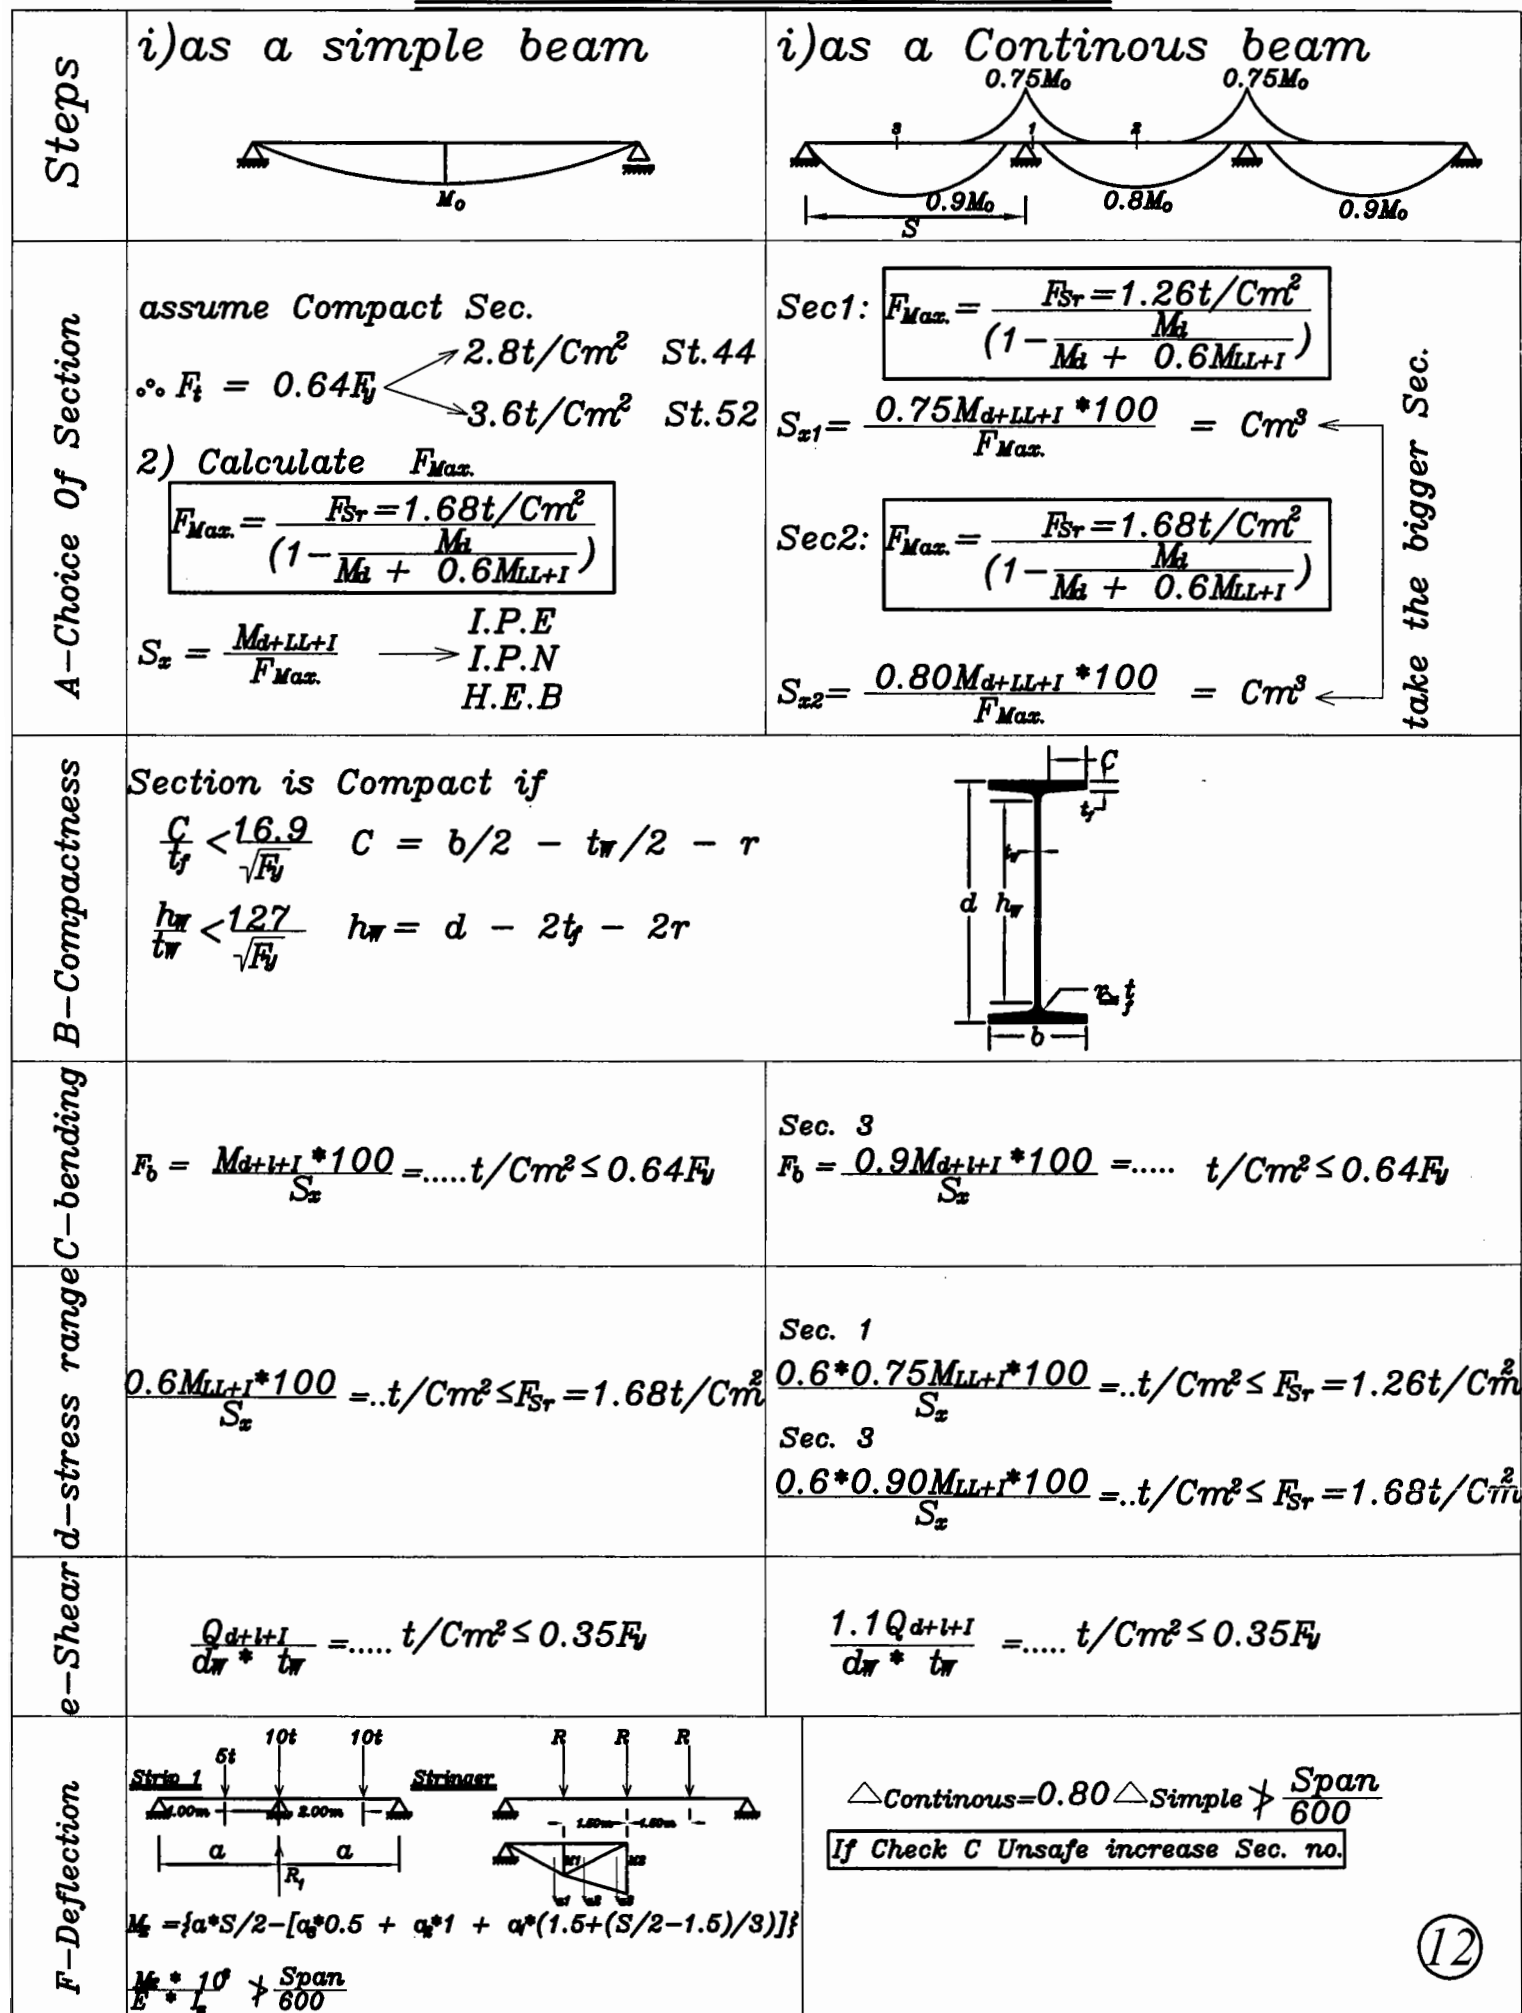 Steps
i)as a simple beam
M₀
i)as a Continous beam
0.75M₀ 0.75M₀
3 1 2
0.9M₀ 0.8M₀ 0.9M₀
S
A-Choice Of Section
assume Compact Sec.
∴ Fₜ = 0.64Fy
2.8t/Cm² St.44
3.6t/Cm² St.52
2) Calculate F Max.
F Max. = FSr=1.68t/Cm² / (1 - Md / (Md + 0.6MLL+I))
Sx = Md+LL+I / F Max.
I.P.E
I.P.N
H.E.B
Sec1: F Max. = FSr=1.26t/Cm² / (1 - Md / (Md + 0.6MLL+I))
Sx1 = 0.75Md+LL+I *100 / F Max. = Cm³
Sec2: F Max. = FSr=1.68t/Cm² / (1 - Md / (Md + 0.6MLL+I))
Sx2 = 0.80Md+LL+I *100 / F Max. = Cm³
take the bigger Sec.
B-Compactness
Section is Compact if
C/tf < 16.9/√Fy C = b/2 - tw/2 - r
hw/tw < 127/√Fy hw = d - 2tf - 2r
C
tf
tw
d hw
r≃tf
b
C-bending
Fb = Md+l+I *100 / Sx =.....t/Cm² ≤ 0.64Fy
Sec. 3
Fb = 0.9Md+l+I *100 / Sx =..... t/Cm² ≤ 0.64Fy
d-stress range
0.6MLL+I*100 / Sx =..t/Cm² ≤ FSr = 1.68t/Cm²
Sec. 1
0.6*0.75MLL+I*100 / Sx =..t/Cm² ≤ FSr = 1.26t/Cm²
Sec. 3
0.6*0.90MLL+I*100 / Sx =..t/Cm² ≤ FSr = 1.68t/Cm²
e-Shear
Qd+l+I / dw * tw =..... t/Cm² ≤ 0.35Fy
1.1Qd+l+I / dw * tw =..... t/Cm² ≤ 0.35Fy
F-Deflection
Strip 1
5t 10t 10t
1.00m 2.00m
a a
R₁
Stringer
R R R
1.50m 1.50m
M1 M2
a1 a2 a3
={a*S/2-[a*0.5 + a*1 + a*(1.5+(S/2-1.5)/3)]}
E * I ≯ Span/600
△Continous=0.80△Simple ≯ Span/600
If Check C Unsafe increase Sec. no.
12